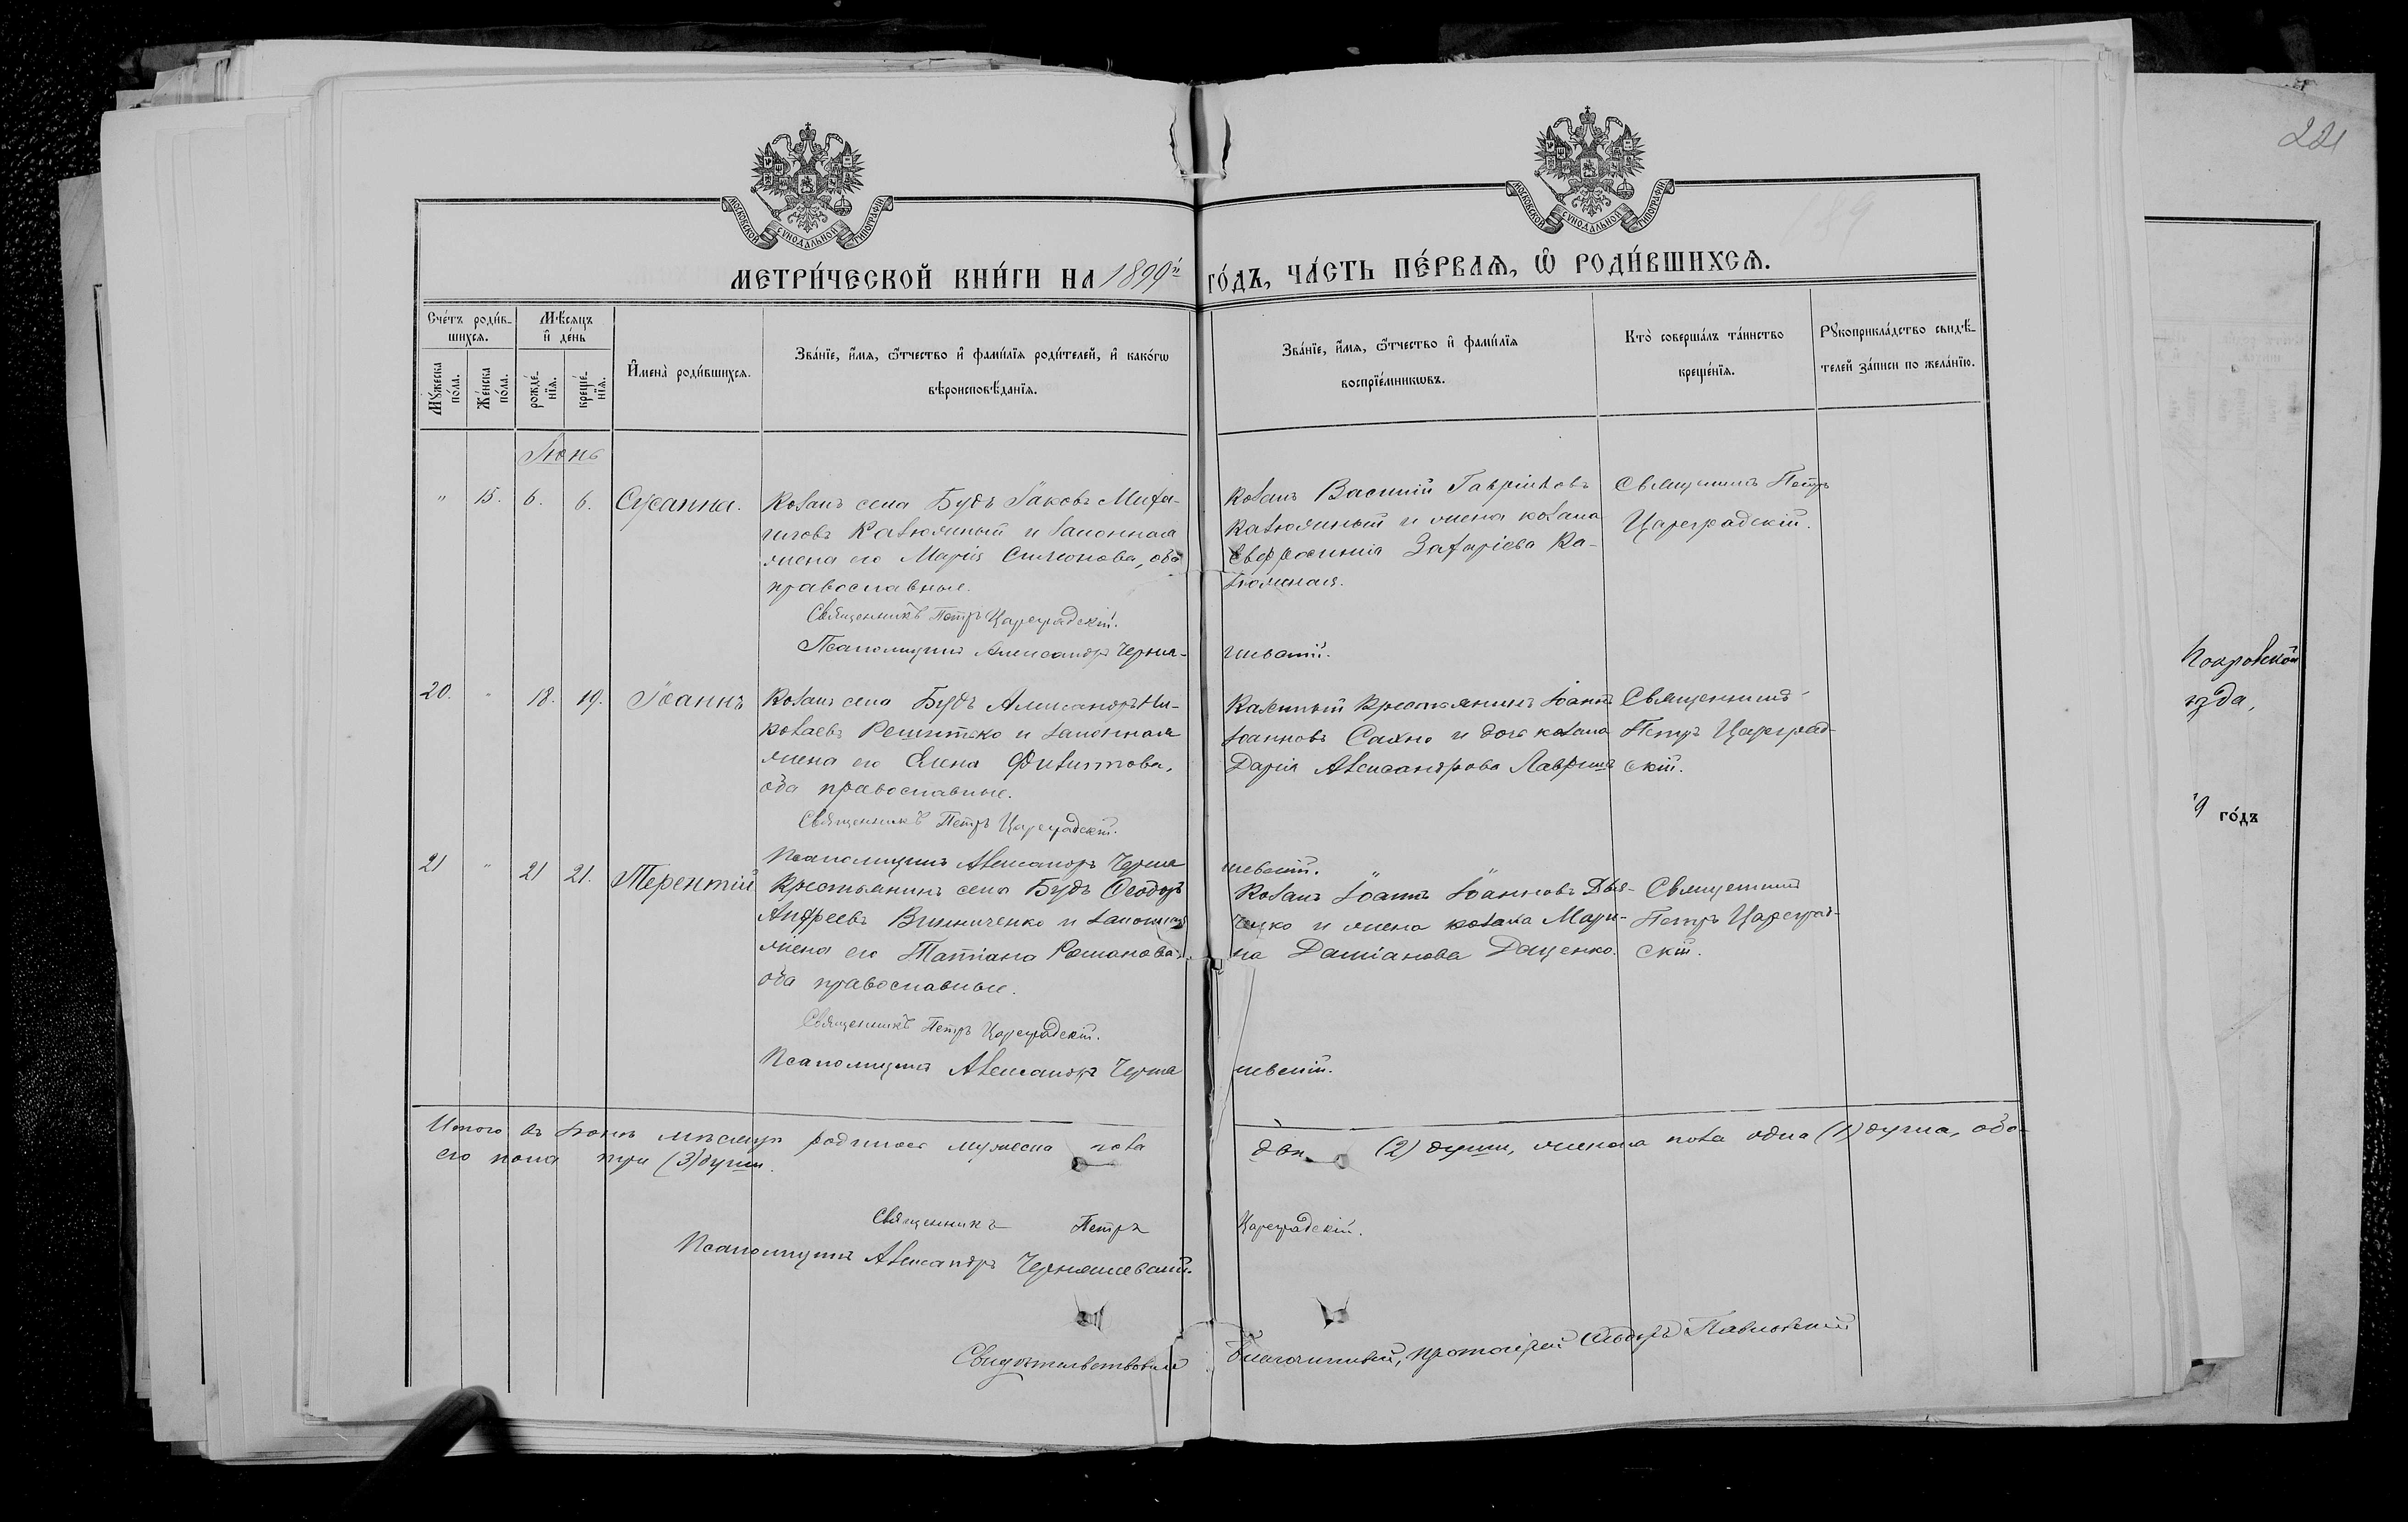 221
МОСКОВСКОЙ СУНОДАЛЬНОЙ ТИПОГРАФІИ
МОСКОВСКОЙ СУНОДАЛЬНОЙ ТИПОГРАФІИ
189
МЕТРИ́ЧЕСКОЙ КНИ́ГИ НА 1899й ГО́ДЪ, ЧА́СТЬ ПЕ́РВАЯ, Ѽ РОДИ́ВШИХСЯ.
Сче́тъ роди́в-
шихся.
Мѣсяцъ
и де́нь
Мꙋ́жеска по́ла.
Же́нска по́ла.
рожде́-нїя.
креще́-нїя.
Имена̀ роди́вшихся.
Зва́нїе, и́мя, ѻ҆́тчество и фами́лїя роди́телей, и како́гѡ
вѣроисповѣ́данїя.
Зва́нїе, и́мя, ѻ҆́тчество и фами́лїя
воспрїе́мникѡвъ.
Кто̀ соверша́лъ та́инство
креще́нїя.
Рꙋкоприкла́дство свидѣ́-
телей за́писи по жела́нїю.
Іюнь
" 15. 6. 6. Сусанна.
Козакъ села Будъ Іаковъ Миха-
иловъ Катюжный и законная
жена его Марія Симеонова, оба
православные.
Священникъ Петръ Цареградскій.
Псаломщикъ Александръ Черня-
Козакъ Василій Гавріиловъ
Катюжный и жена козака
Евфросинія Захаріева Ка-
тюжная.
шевскій.
Священникъ Петръ
Цареградскій.
20. " 18. 19. Іоаннъ
Козакъ села Будъ Александръ Ни-
колаевъ Решитько и законная
жена его Елена Филиппова,
оба православные.
Священникъ Петръ Цареградскій.
Псаломщикъ Александръ Черня
Казенный крестьянинъ Іоаннъ
Іоанновъ Сахно и дочь козака
Дарія Александрова Лавриш
шевскій.
Священникъ
Петръ Цареград-
скій.
21 " 21 21. Терентій
Крестьянинъ села Будъ Ѳеодоръ
Андреевъ Винниченко и законная
жена его Татіана Романова,
оба православные.
Священникъ Петръ Цареградскій.
Псаломщикъ Александръ Черня
Козакъ Іоаннъ Іоанновъ Дья-
ченко и жена козака Мари-
на Даміанова Даценко.
шевскій.
Священникъ
Петръ Цареград-
скій.
Итого въ Іюнѣ мѣсяцѣ родилось мужеска пола двѣ (2) души, женска пола одна (1) душа, обо-
его пола три (3) души.
Священникъ Петръ Цареградскій.
Псаломщикъ Александръ Черняшевскій.
Свидѣтельствовалъ Благочинный, протоіерей Ѳеодоръ Павловскій
Покровской
ѣзда,
9 го́дъ